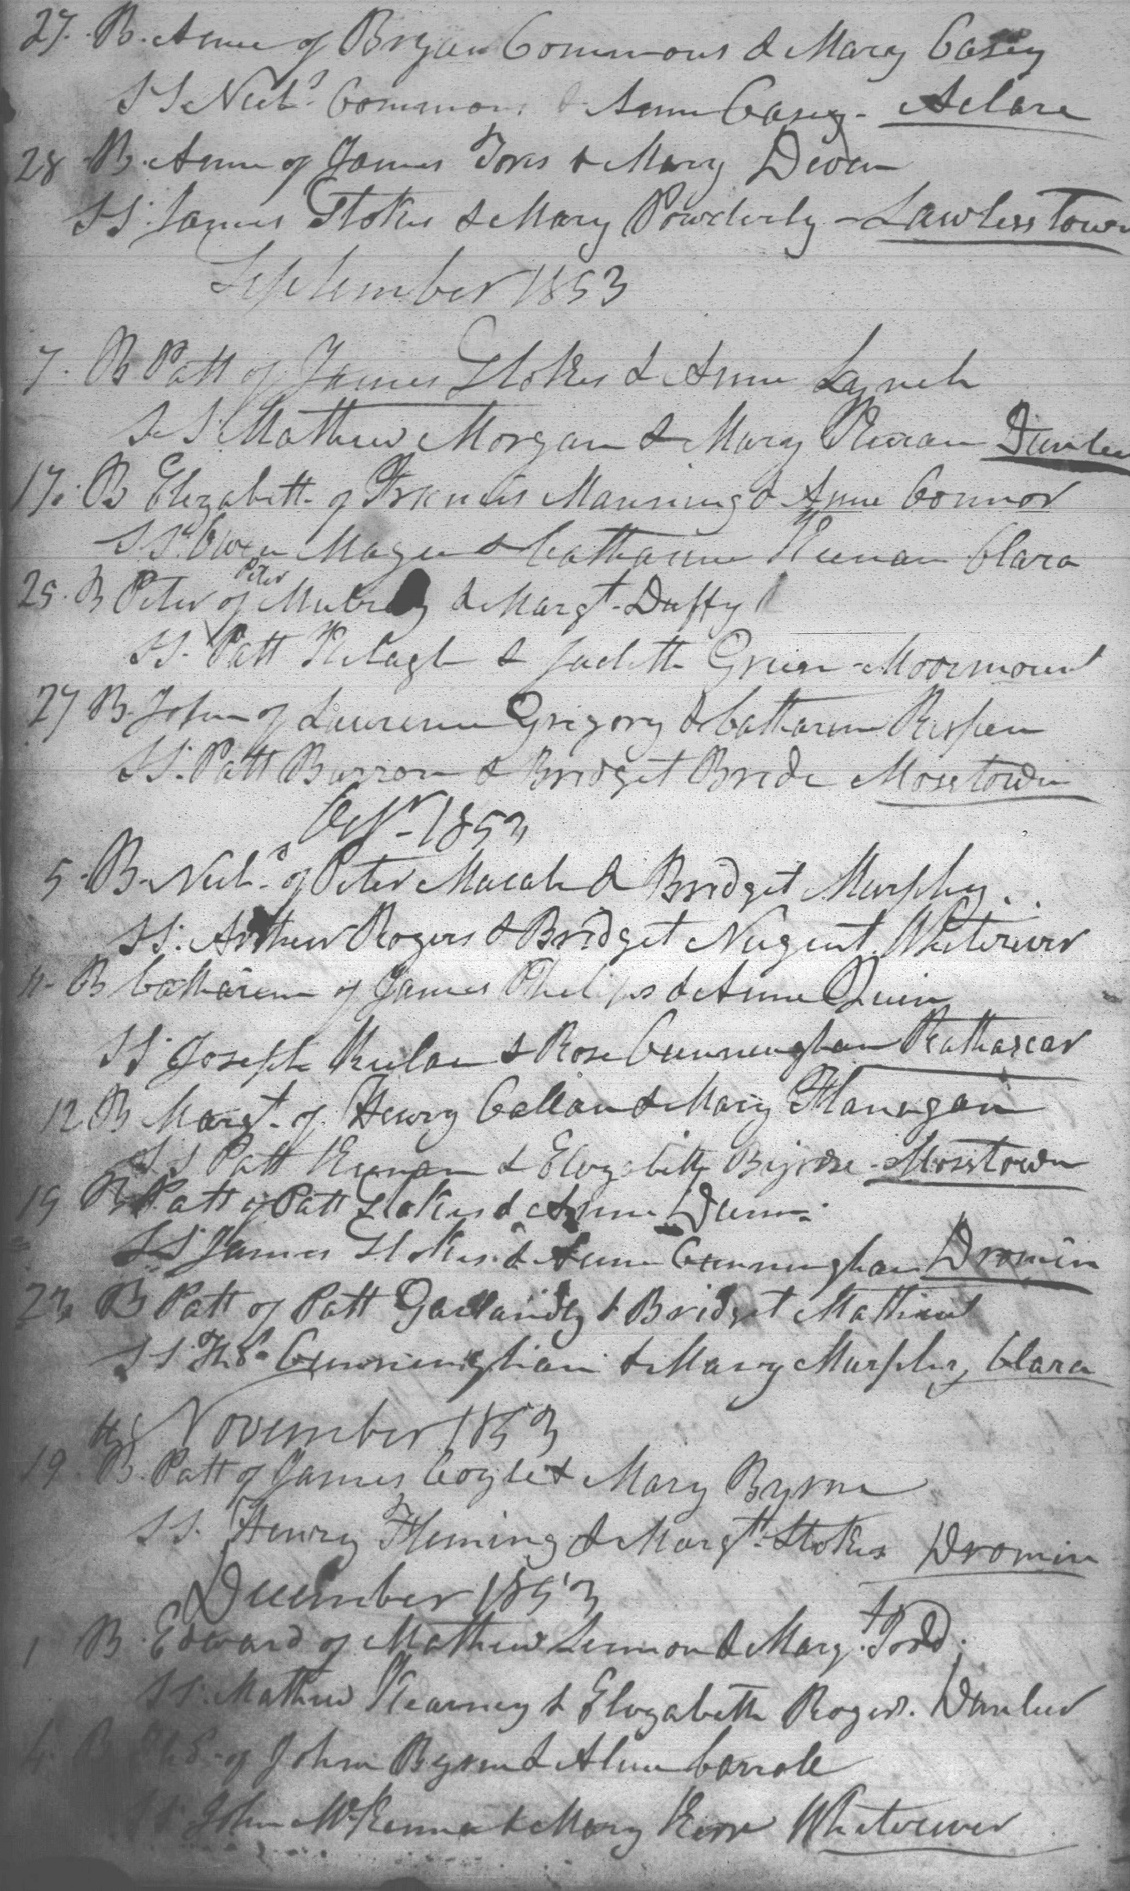 27. B. Anne of Bryan Commons & Mary Casey
SS Nichs. Commons & Anne Casey - Aclare
28 B. Anne of James & Mary Devan
SS. James Stokes & Mary Powderly - Lawless Town
September 1853
7. B Patt of James Stokes & Anne Lynch
SS. Mathew Morgan & Mary Kieran
17. B Elizabeth of Francis Manning & Anne Connor
SS. Owen Magee & Catharine Keenan Clara
Peter
25. B Peter of & Margt. Duffy
SS. Patt & Judith Moormount
27 B. John of Laurence Grigory & Catharine
SS. Patt Barron & Bridget Bride Mosstown
Octr. 1853
5. B. Nichs. of Peter Macale & Bridget Murphy
SS. Arthur Rogers & Bridget Nugent Whiteriver
B Catharine of James Phelips & Anne Quin
SS Joseph & Rose Cunningham
12 B Margt. of Henry Callan & Mary Flanagan
SS Patt Keenan & Elizabeth Byrne - Mosstown
19 B Patt of Patt Stokes & Anne
SS James Stokes & Anne Cunningham Dromin
B Patt of Patt & Bridget Mathews
SS. Ths. Cunningham & Mary Murphy Clara
November 1853
19. B. Patt of James Coyle & Mary Byrne
SS. Henry Fleming & Margt. Stokes Dromin
December 1853
1 B. Edward of Mathew Lennon & Margt. Todd.
SS. Mathew Kearney & Elizabeth Rogers. Dunleer
4. B of John Byrne & Carrole
SS. John McKenna & Mary Kerr Whiteriver